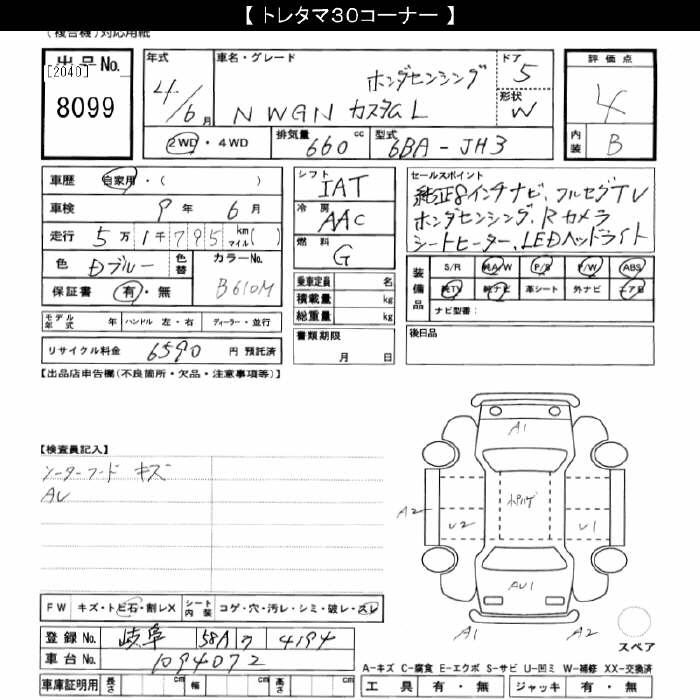 【 トレタマ30コーナー 】
(複合機)対応用紙
出品No.
[2040]
8099
年式
4/6月
車名・グレード
ホンダセンシング
N WGN カスタム L
ドア
5
形状
W
評価点
4
内装
B
2WD・4WD
排気量 660 cc
型式 6BA-JH3
車歴 自家用・( )
車検 9年 6月
走行 5万1千795 km マイル( )
色 Dブルー 色替 カラーNo. B610M
保証書 有・無
モデル年式 年 ハンドル 左・右 ディーラー・並行
リサイクル料金 6590 円 預託済
シフト IAT
冷房 AAC
燃料 G
乗車定員 名
積載量 kg
総重量 kg
書類期限
月 日
セールスポイント
純正8インチナビ、フルセグTV
ホンダセンシング、Rカメラ
シートヒーター、LEDヘッドライト
装備品
S/R 純A/W P/S P/W ABS
純TV 純ナビ 革シート 外ナビ エアB
ナビ型番:
後日品
【出品店申告欄(不良箇所・欠品・注意事項等)】
【検査員記入】
キズ
AU
A1
A2
U2
U1
AU1
A1
A2
スペア
FW キズ・トビ石・割レX シート内装 コゲ・穴・汚レ・シミ・破レ・スレ
登録No. 岐阜 58A ワ 4194
車台No. 1094072
車庫証明用 長さ cm 幅 cm 高さ cm
A-キズ C-腐食 E-エクボ S-サビ U-凹ミ W-補修 XX-交換済
工具 有・無 ジャッキ 有・無